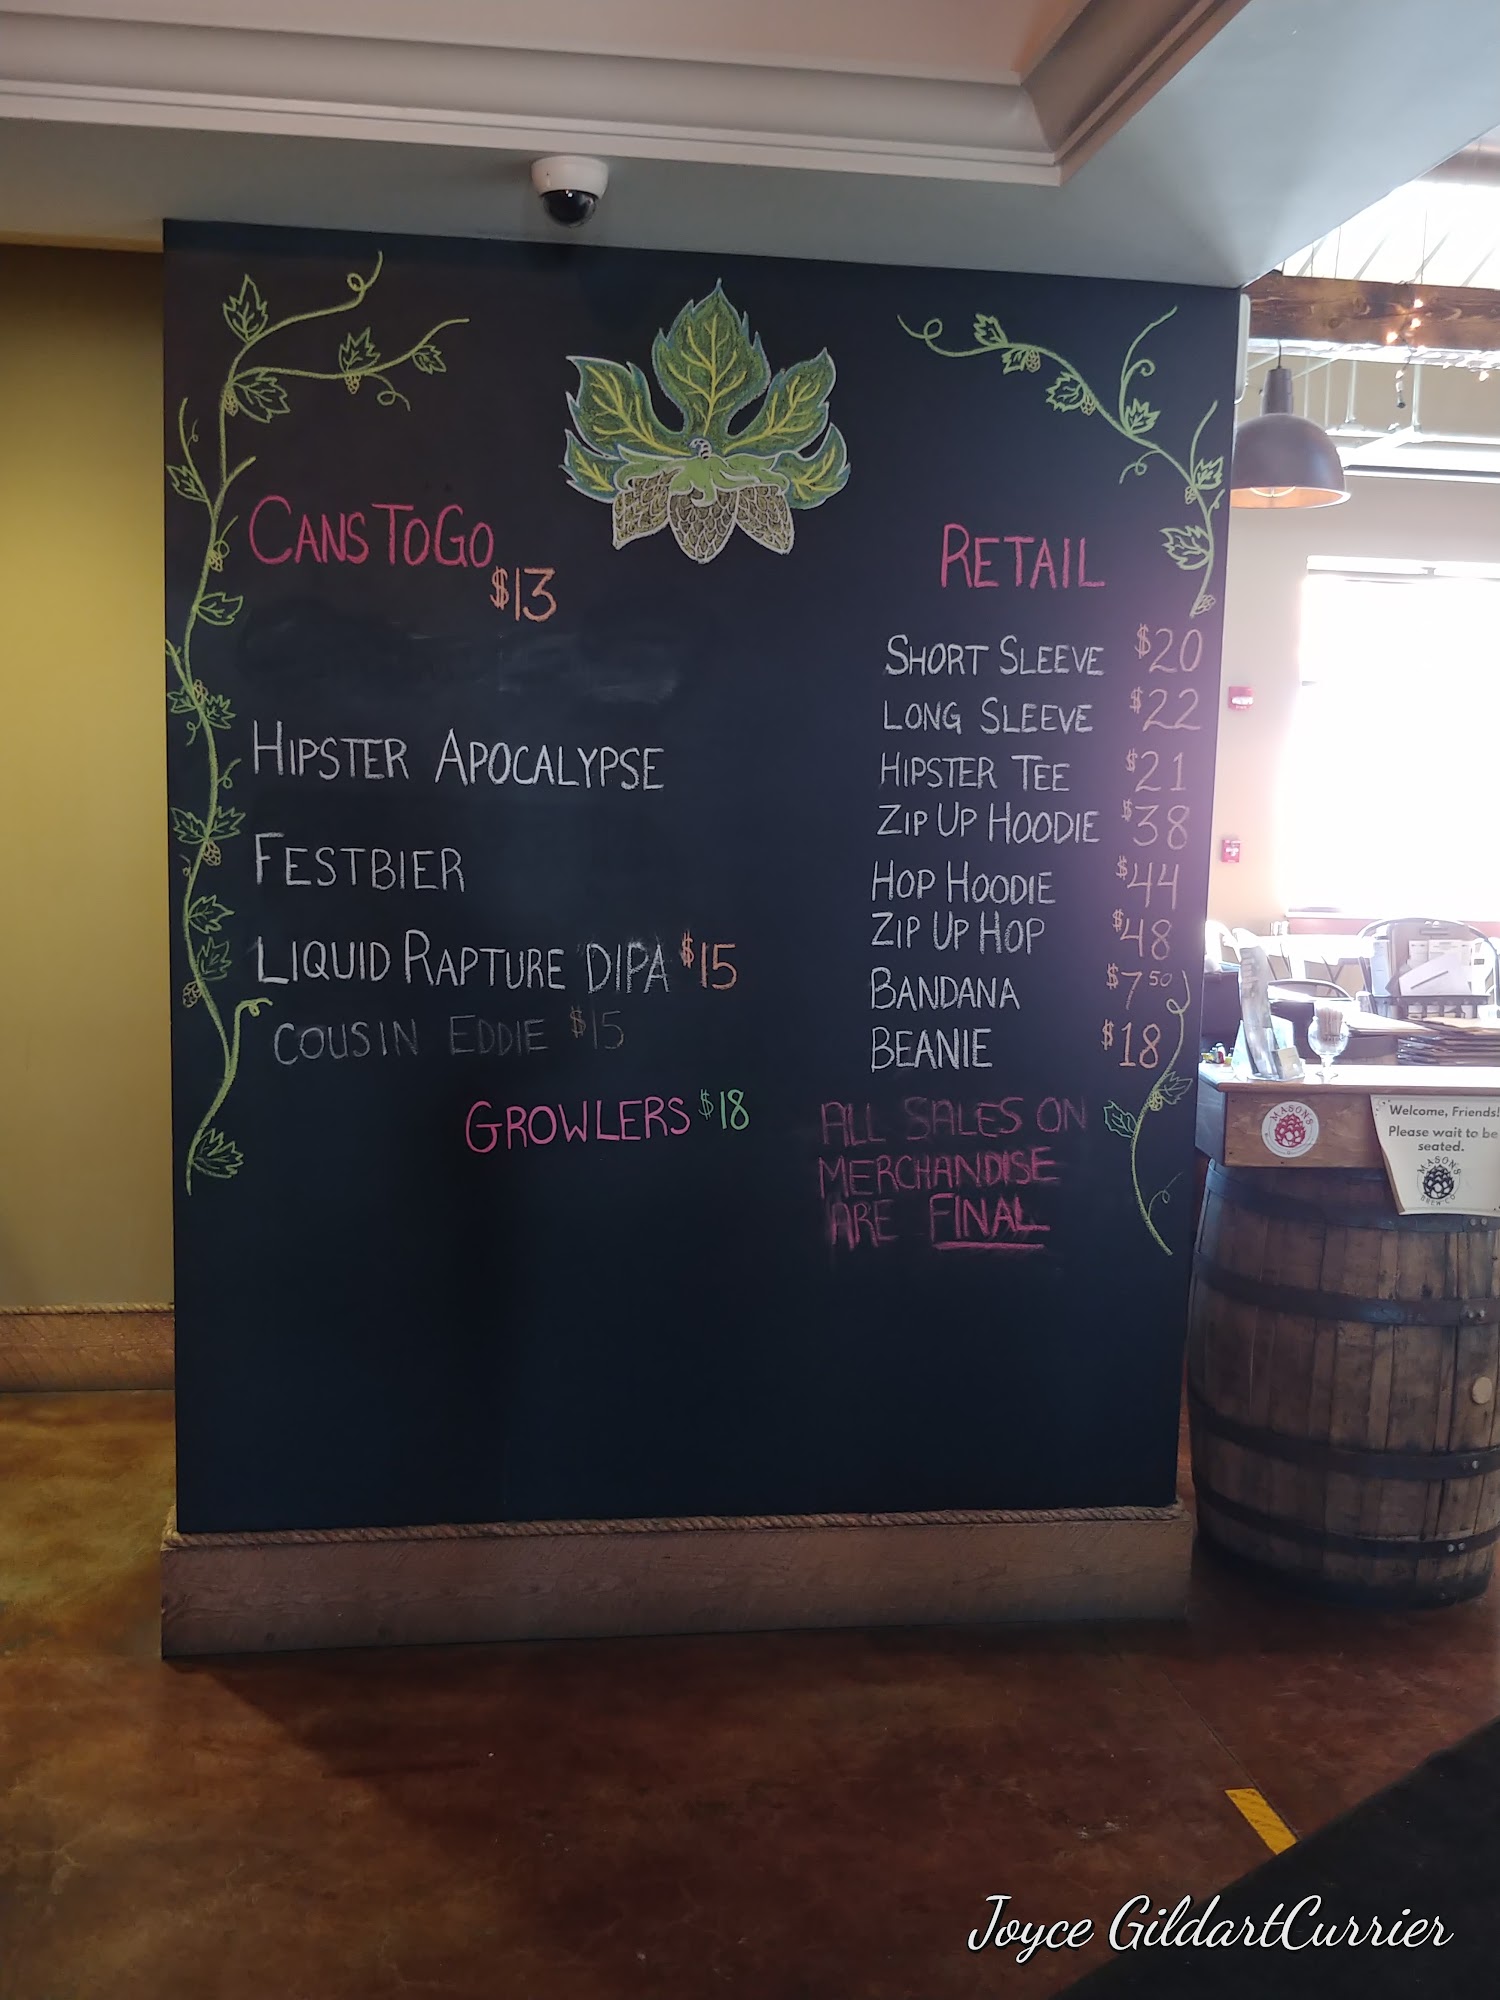 CANS TO GO
$13
HIPSTER APOCALYPSE
FESTBIER
LIQUID RAPTURE DIPA $15
COUSIN EDDIE $15
GROWLERS $18
RETAIL
SHORT SLEEVE $20
LONG SLEEVE $22
HIPSTER TEE $21
ZIP UP HOODIE $38
HOP HOODIE $44
ZIP UP HOP $48
BANDANA $7.50
BEANIE $18
ALL SALES ON
MERCHANDISE
ARE FINAL
MASON'S
Welcome, Friends!
Please wait to be
seated.
MASON'S
BREW CO
Joyce GildartCurrier